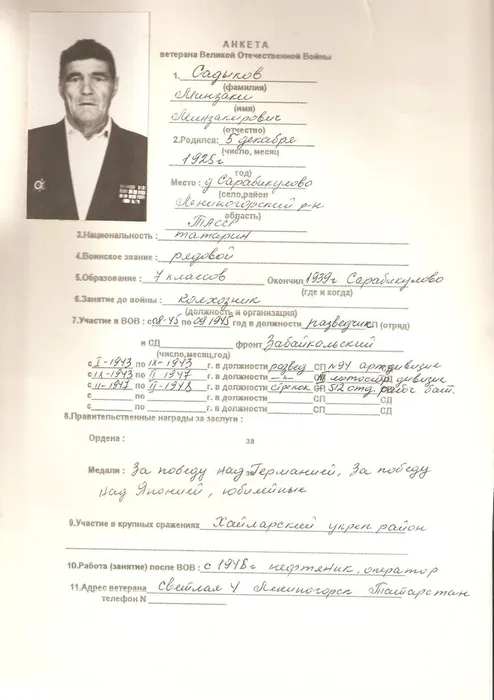 АНКЕТА
ветерана Великой Отечественной Войны
1. Садыков
(фамилия)
Минзаки
(имя)
Минзакирович
(отчество)
2.Родился: 5 декабря
(число, месяц
1925 г
год)
Место : д Сарабикулово
(село,район
Лениногорский р-н
область)
ТАССР
3.Национальность : татарин
4.Воинское звание : рядовой
5.Образование : 7 классов Окончил 1939г Сарабикулово
(где и когда)
6.Занятие до войны : колхозник
(должность и организация)
7.Участие в ВОВ : с 08-45 по 09 1945 год в должности разведчик СП (отряд)
и ОД фронт Забайкальский
(число,месяц,год)
с I-1943 по IX-1943 г. в должности развед СП №94 арт дивизие
с IX-1943 по II 1947 г. в должности -"- СП дивизие
с II-1947 по II-1948 г. в должности стрелок СП 512 отд. рабоч бат.
с по г. в должности СП СД
с по г. в должности СП СД
8.Правительственные награды за заслуги :
Ордена : за
Медали : За победу над Германией, За победу
за
над Японией, юбилейные
9.Участие в крупных сражениях Хайларский укреп. район
10.Работа (занятие) после ВОВ : с 1948г нефтяник, оператор
11.Адрес ветерана Светлая 4 Лениногорск Татарстан
телефон N